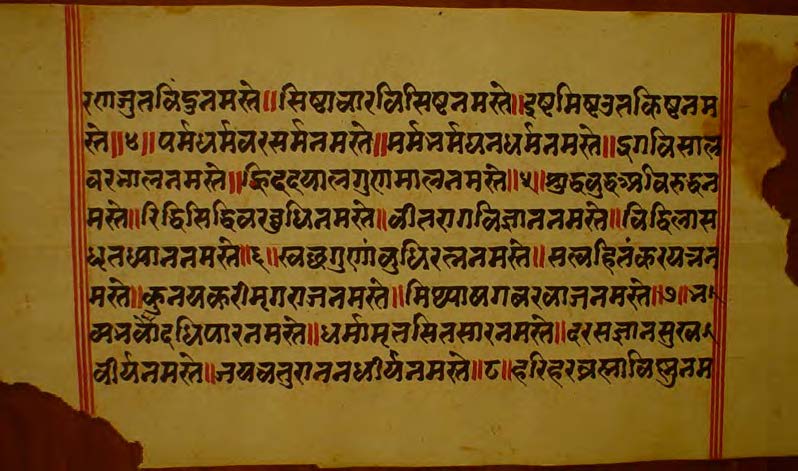 रणाजुतविंदुनमस्ते॥सिष्टाचारविसिष्टनमस्ते॥दुष्टमिष्टउतकिष्टनम
स्ते॥४॥पर्मधर्मवरसर्मनमस्ते॥मर्मभर्मघनधर्मनमस्ते॥दृगविसाल
वरभालनमस्ते॥ह्रिददयालगुरामालनमस्ते॥५॥शुद्धवुद्धअविरुद्धन
मस्ते॥रिद्धिसिद्धिवरवुधिनमस्ते॥वीतरागविज्ञाननमस्ते॥चिद्विलास
धृतध्याननमस्ते॥६॥स्वछगुणांवुधिरत्ननमस्ते॥सत्वहितंकरयत्नन
मस्ते॥कुनयकरीमृगराजनमस्ते॥मिथ्याषगवरवाजनमस्ते॥७॥भ
व्यभवोदधिपारनमस्ते॥धर्मामृतसितसारनमस्ते॥दरसज्ञानसुख
वीर्यनमस्ते॥जयचतुराननधीर्यनमस्ते॥८॥हरिहरव्रह्माविष्णुनम